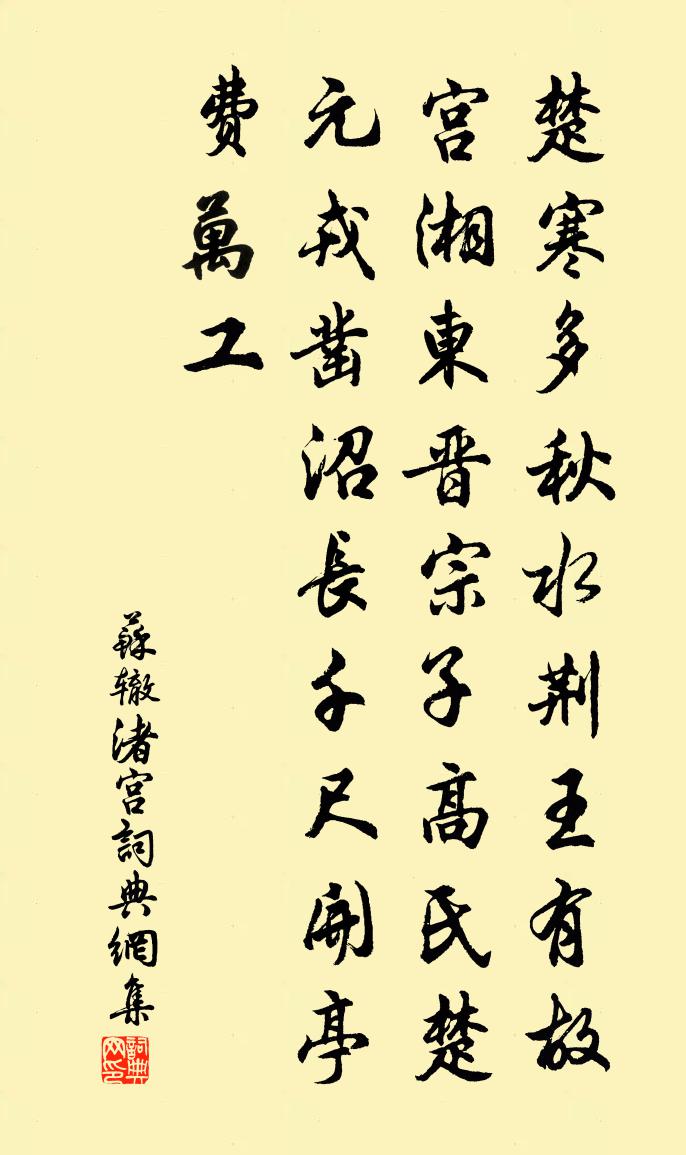 楚寒多秋水荆王有故
宫湘東晋宗子高氏楚
元戎凿沼長千尺開亭
費萬工
蘇辙渚宫詞典網集
詞典网印